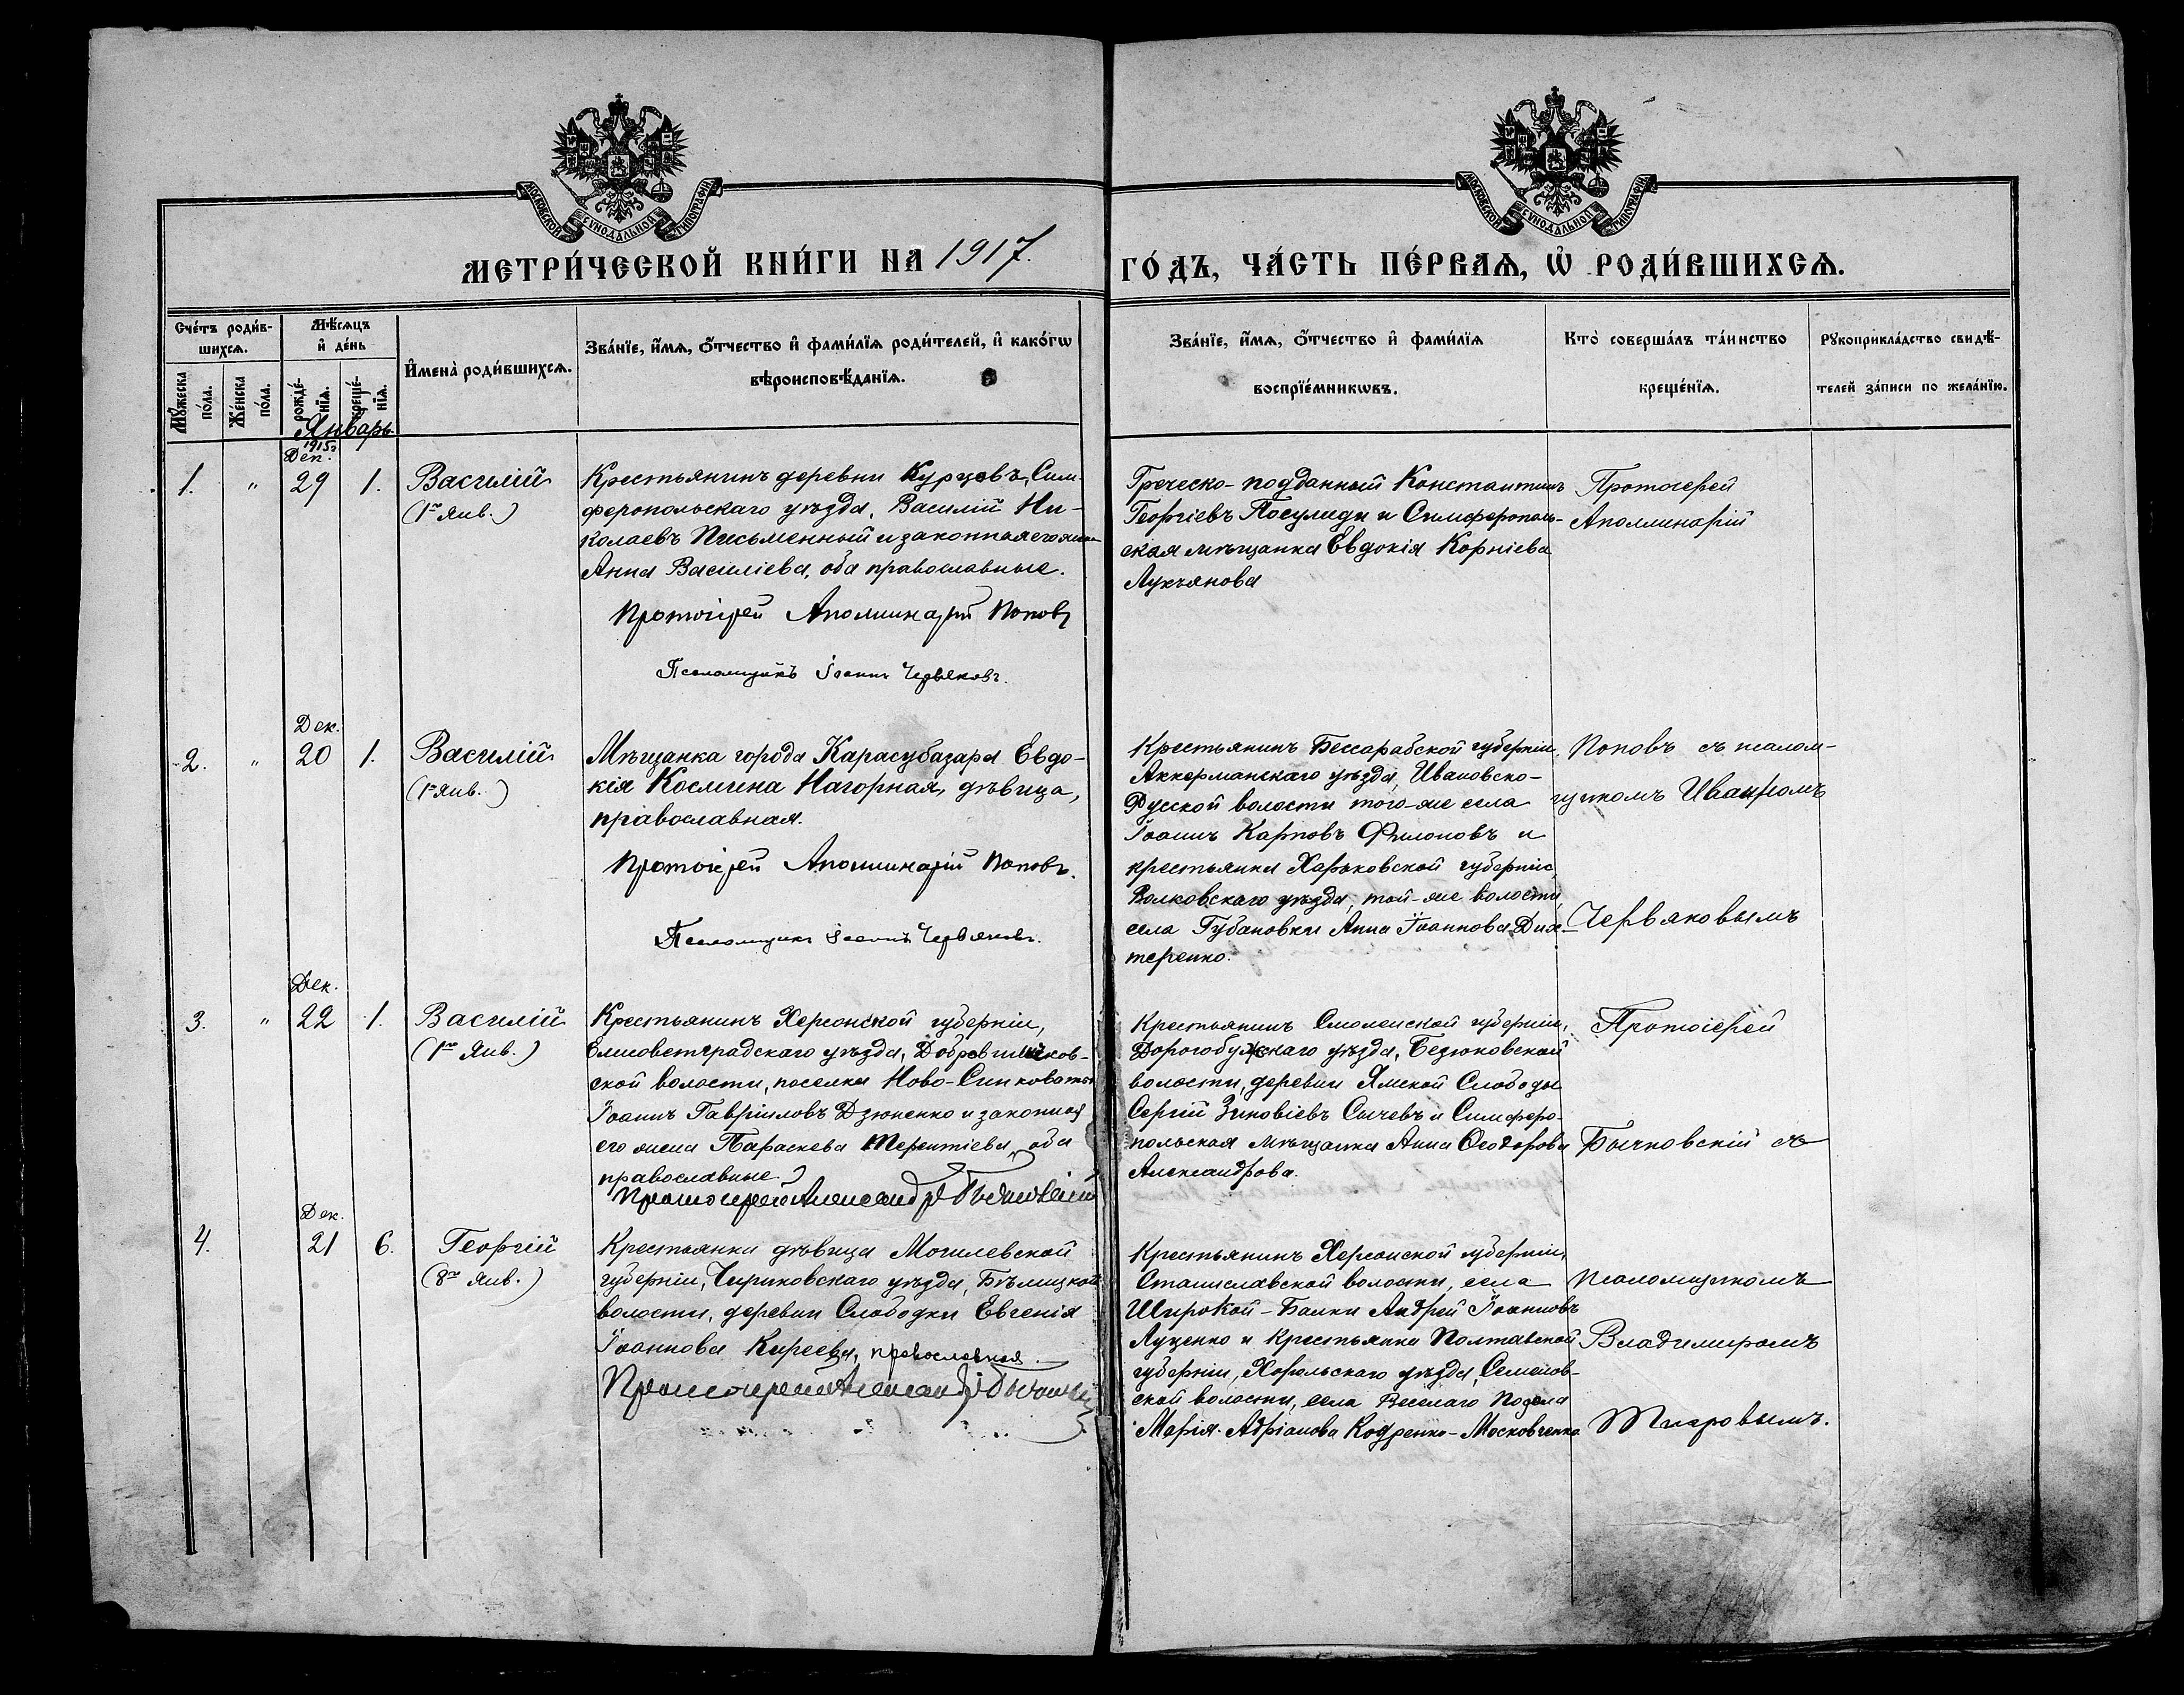 МОСКОВСКОЙ СѴНОДАЛЬНОЙ ТИПОГРАФІИ
МОСКОВСКОЙ СѴНОДАЛЬНОЙ ТИПОГРАФІИ
МЕТРИ́ЧЕСКОЙ КНИ́ГИ НА 1917.
ГО́ДЪ, ЧА́СТЬ ПЕ́РВАѦ, Ѽ РОДИ́ВШИХСѦ.
Сче́тъ роди́в-
шихсѧ.
Мѣ́сѧцъ
и҆ де́нь
Мꙋ́жеска
по́ла.
Же́нска
по́ла.
рожде́-
нїѧ.
креще́-
нїѧ.
И҆мена̀ роди́вшихсѧ.
Зва́нїе, и҆́мѧ, ѻ҆́тчество и҆ фами́лїѧ роди́телей, и҆ како́гѡ
вѣроисповѣ́данїѧ.
Зва́нїе, и҆́мѧ, ѻ҆́тчество и҆ фами́лїѧ
воспрїе́мникѡвъ.
Кто̀ соверша́лъ та́инство
креще́нїѧ.
Рꙋкоприкла́дство свидѣ́-
телей за́писи по жела́нїю.
Январь
1915 г.
Дек.
1. " 29 1. Василій
(1го Янв.)
Крестьянинъ деревни Курцовъ, Сим-
феропольскаго уѣзда, Василій Ни-
колаевъ Письменный и законная его жена
Анна Василіева, оба православные.
Протоіерей Аполлинарій Поповъ
Псаломщикъ Іоаннъ Червяковъ.
Греческо-подданный Константинъ
Георгіевъ Посулиди и Симферополь-
ская мѣщанка Евдокія Корніева
Лукьянова
Протоіерей
Аполлинарій
Дек.
2. " 20 1. Василій
(1го Янв.)
Мѣщанка города Карасубазара Евдо-
кія Космина Нагорная, дѣвица,
православная.
Протоіерей Аполлинарій Поповъ.
Псаломщикъ Іоаннъ Червяковъ.
Крестьянинъ Бессарабской губерніи,
Аккерманскаго уѣзда, Ивановско-
Русской волости того-же села
Іоаннъ Карповъ Филоповъ и
крестьянка Харьковской губерніи,
Волковскаго уѣзда, той-же волости,
села Губановки Анна Іоаннова Дих-
теренко.
Поповъ съ псалом-
щикомъ Иваномъ
Червяковымъ
Дек.
3. " 22 1. Василій
(1го Янв.)
Крестьянинъ Херсонской губерніи,
Елисоветградскаго уѣзда, Добровиличков-
ской волости, поселка Ново-Синковатой
Іоаннъ Гавріиловъ Дзюненко и законная
его жена Параскева Терентіева, оба
православные.
Протоіерей Александръ Бычковскій
Крестьянинъ Смоленской губерніи,
Дорогобужскаго уѣзда, Безюковской
волости, деревни Ямской Слободы
Сергій Зиновіевъ Сычевъ и Симферо-
польская мѣщанка Анна Ѳеодорова
Александрова.
Протоіерей
Бычковскій съ
Дек.
4. 21 6. Георгій
(8го Янв.)
Крестьянка дѣвица Могилевской
губерніи, Чериковскаго уѣзда, Бѣлицкой
волости, деревни Слободки Евгенія
Іоаннова Киреева, православная.
Протоіерей Александръ Бычковскій
Крестьянинъ Херсонской губерніи,
Станиславской волости, села
Широкой-Балки Андрей Іоанновъ
Луценко и крестьянка Полтавской
губерніи, Хорольскаго уѣзда, Семенов-
ской волости, села Веселаго Подола
Марія Адріанова Кодренко-Московченко
псаломщикомъ
Владимиромъ